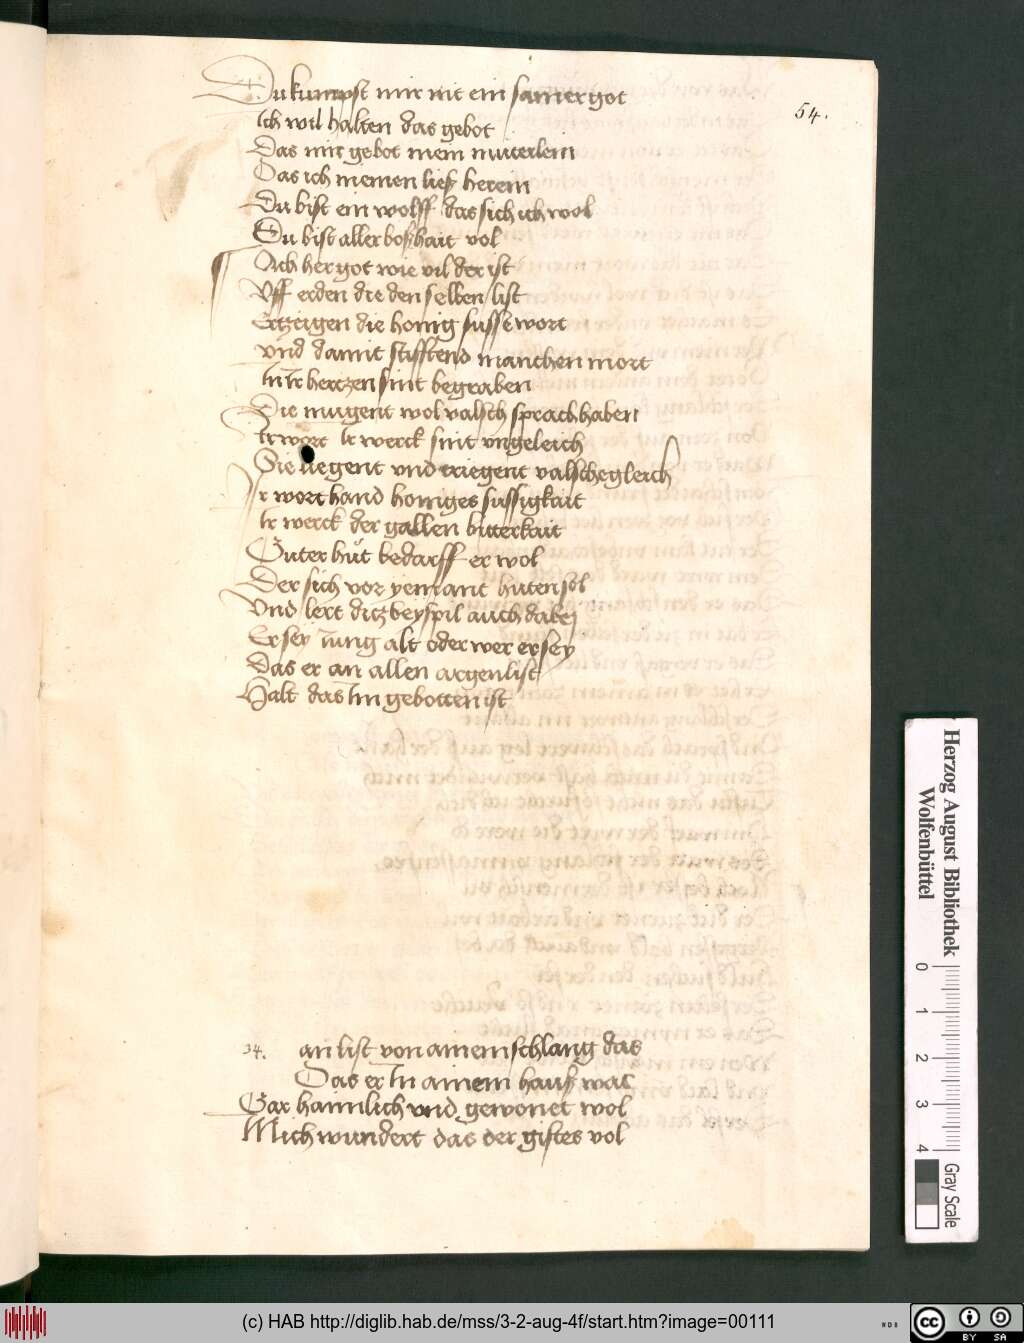 54.
Du kumpst mir nit ein samer got
Ich wil halten das gebot
Das mir gebot mein muterlein
Das ich niemen ließ herein
Du bist ein wolff das sich ich wol
Du bist aller boßhait vol
Ach her got wie vil der ist
Uff erden die den selben list
Ertzeigen die honig susse wort
Und damit stifftend manchen mort
In ir hertzen sint begraben
Die mugent wol valsch sprach haben
Ir wort Ir werck sint ungeleich
Sie liegent und triegent valschegleich
Ir wort hand honiges sussigkait
Ir werck der gallen bitterkait
Guter hut bedarff er wol
Der sich vor yemant huten sol
Und lert ditz beyspil auch dabej
Er sey iung alt oder wer er sey
Das er an allen argen list
Halt das Im gebotten ist
34. an list von ainem schlang das
Das er In ainem hauß was
Gar hainlich und gewonet wol
Mich wundert das der giftes vol
Herzog August Bibliothek
Wolfenbüttel
0 1 2 3 4
Gray Scale
(c) HAB http://diglib.hab.de/mss/3-2-aug-4f/start.htm?image=00111
WDB
cc BY SA